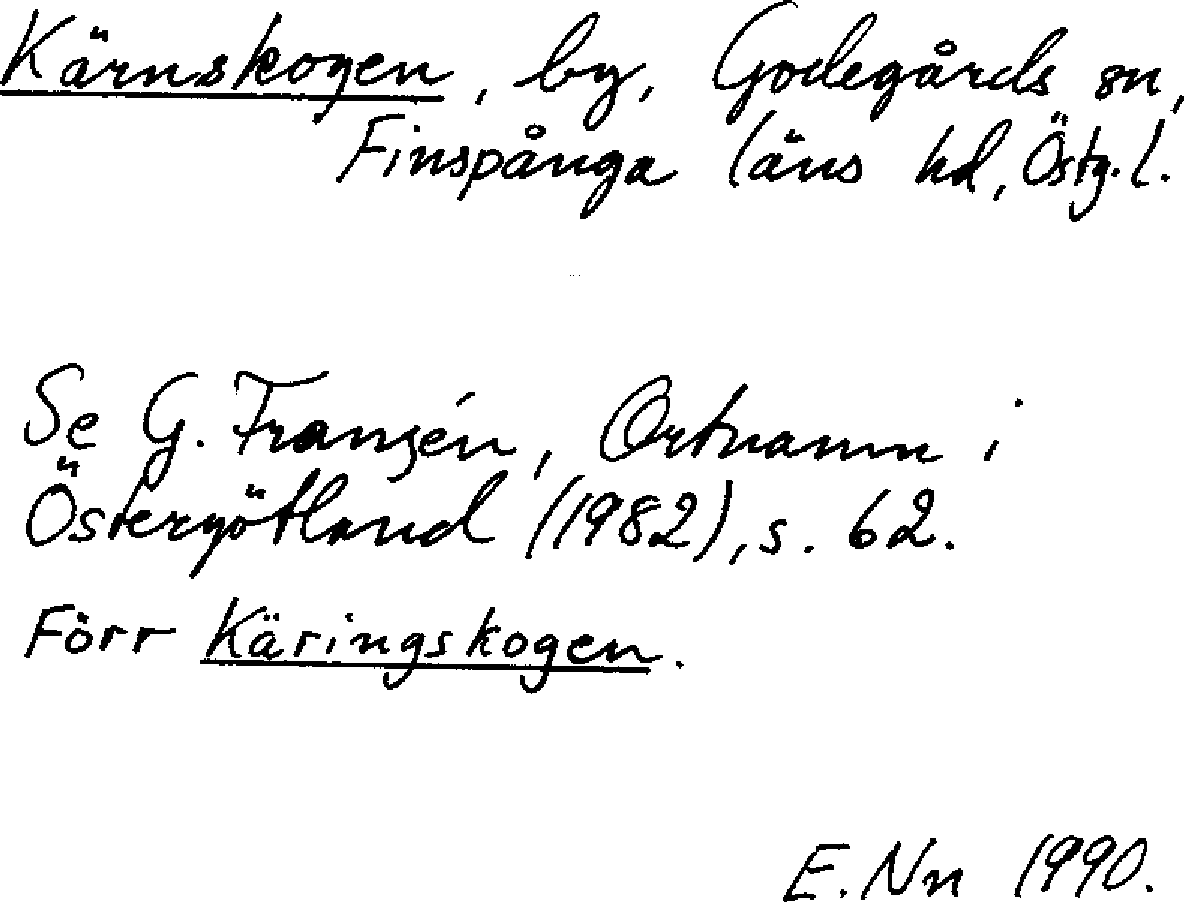 Kärnskogen, by, Godegårds sn,
Finspånga läns hd, Östg. l.
Se G. Franzén, Ortnamn i
Östergötland (1982), s. 62.
Förr Käringskogen.
E. Nn 1990.